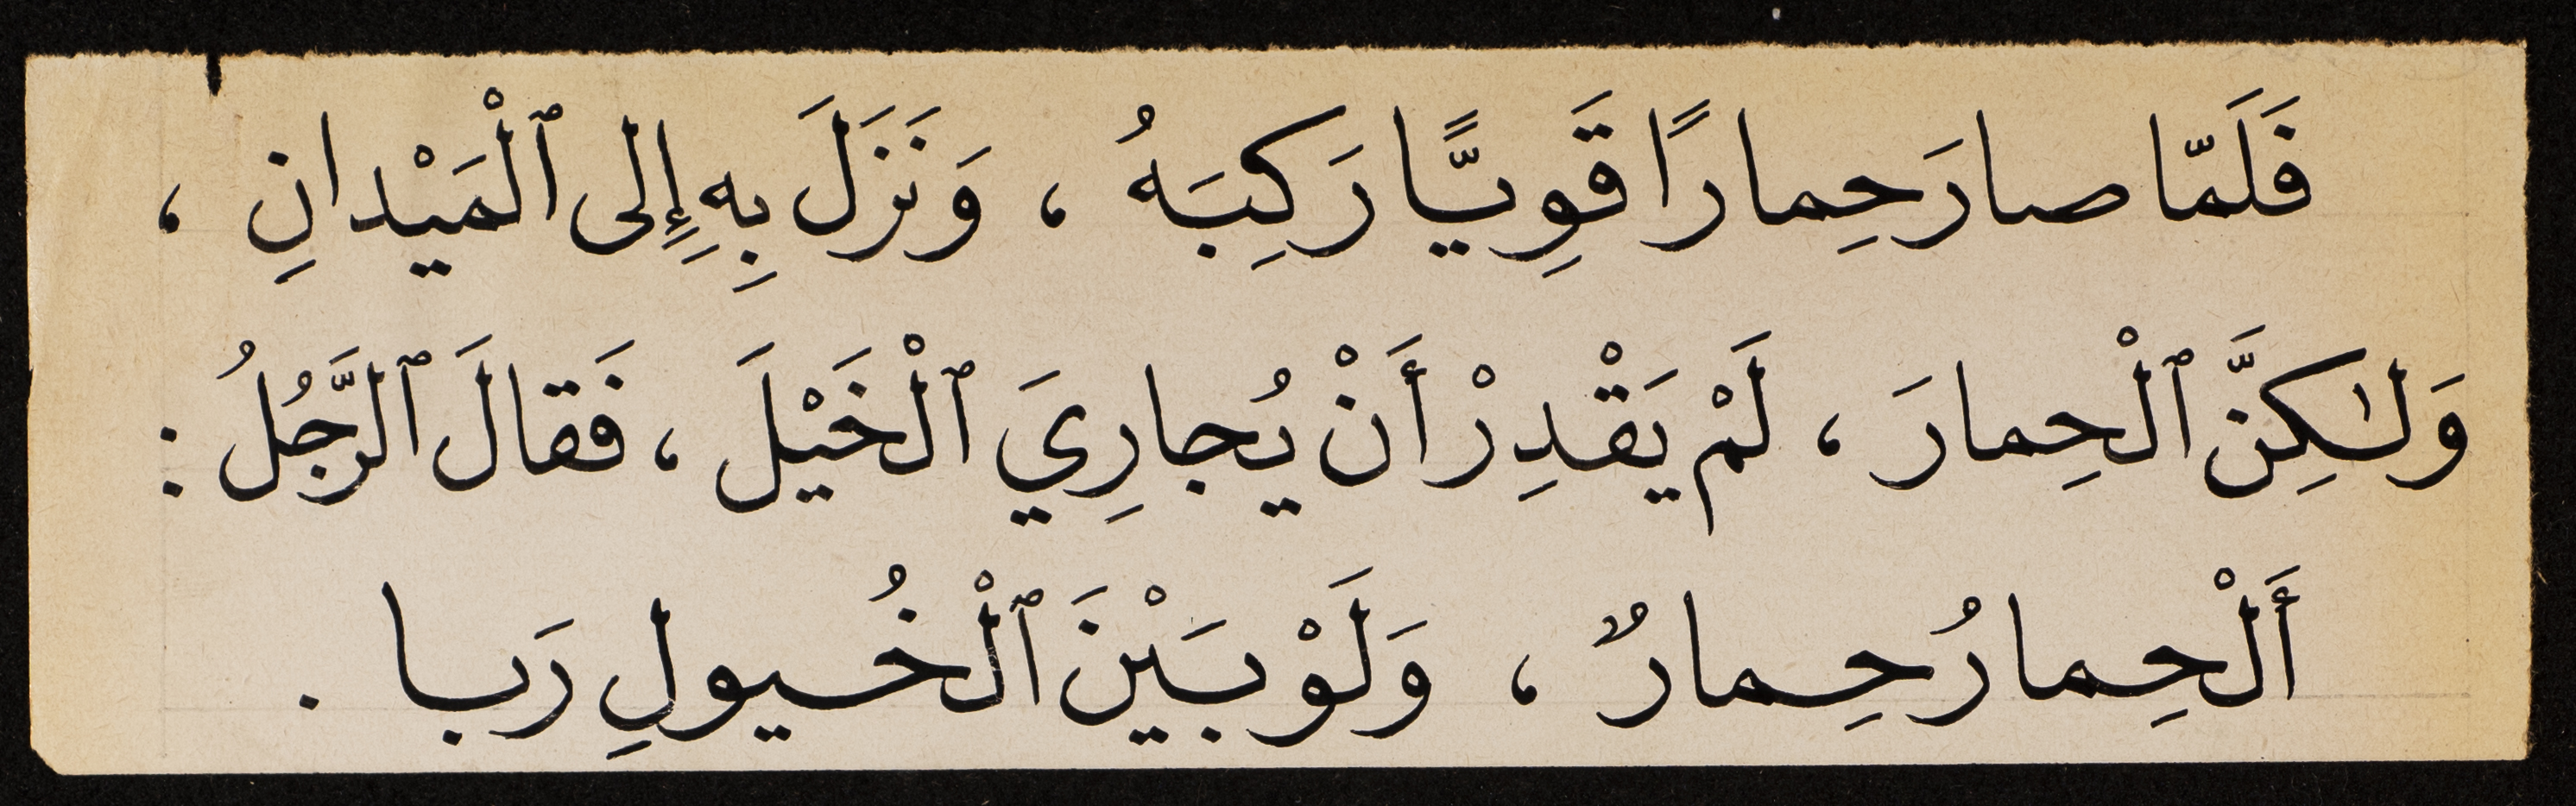 فَلَمّا صارَ حِمارًا قَوِيًّا رَكِبَهُ ، وَنَزَلَ بِهِ إِلى ٱلْمَيْدانِ ،
وَلٰكِنَّ ٱلْحِمارَ ، لَمْ يَقْدِرْ أَنْ يُجارِيَ ٱلْخَيْلَ ، فَقالَ ٱلرَّجُلُ :
أَلْحِمارُ حِمارٌ ، وَلَوْ بَيْنَ ٱلْخُيولِ رَبا .